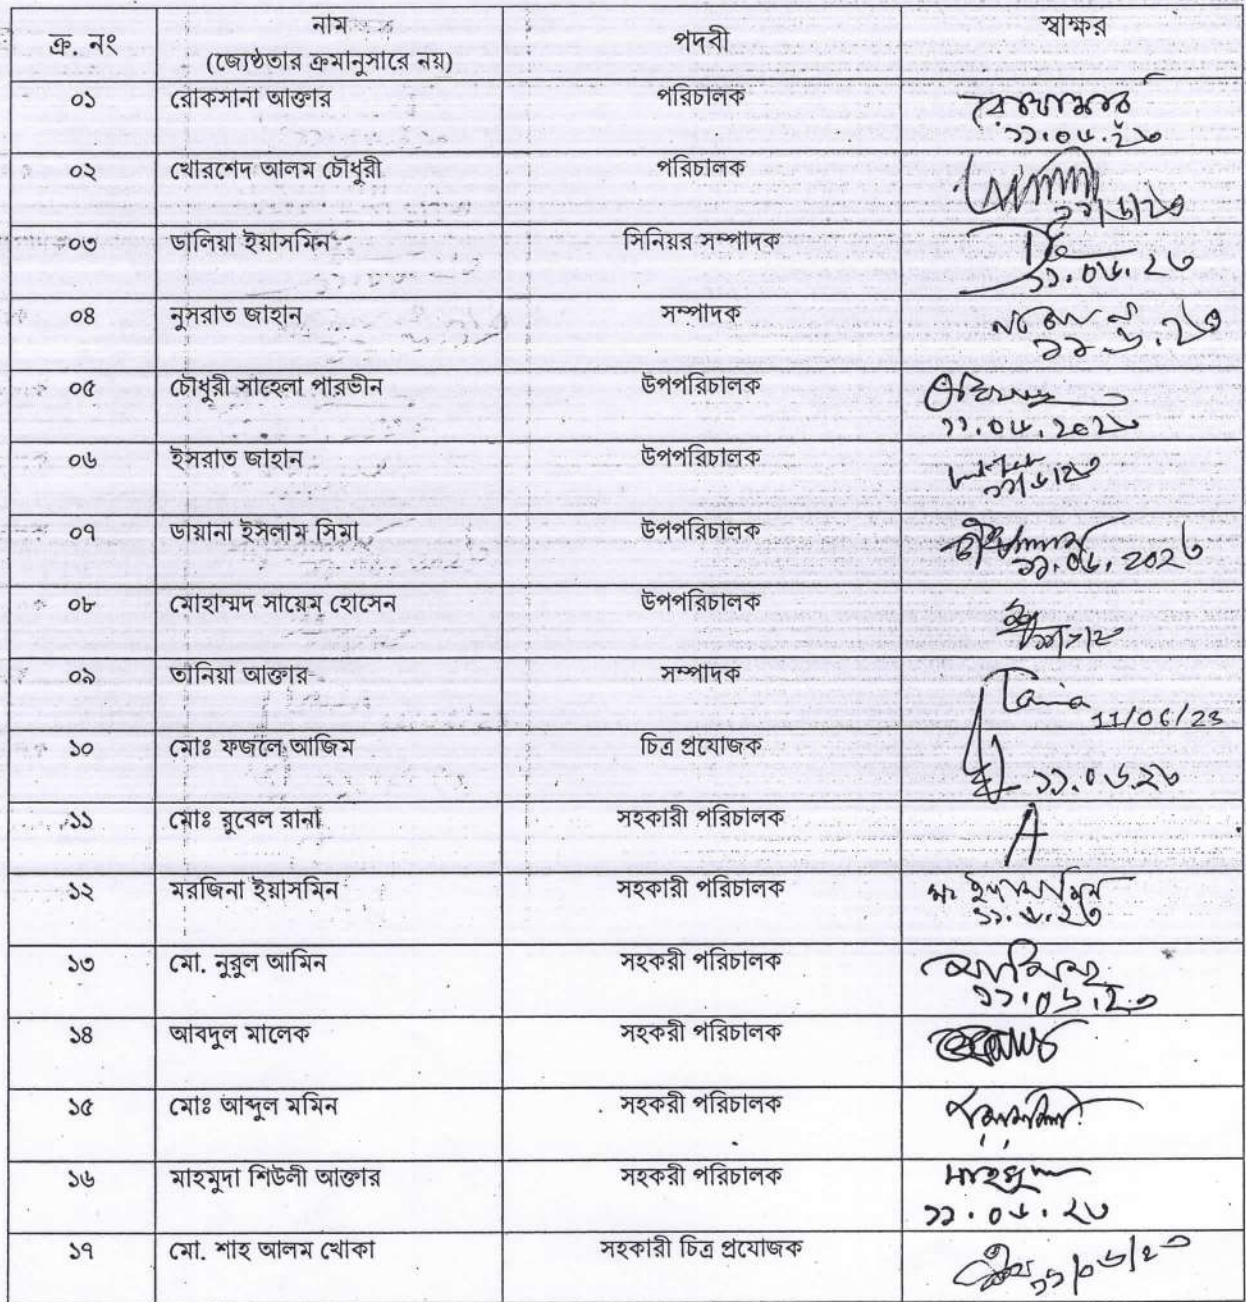 ক্র. নং নাম পদবী স্বাক্ষর
(জ্যেষ্ঠতার ক্রমানুসারে নয়)
০১ রোকসানা আক্তার পরিচালক
১১.০৬.২৩
০২ খোরশেদ আলম চৌধুরী পরিচালক
১১/৬/২৩
০৩ ডালিয়া ইয়াসমিন সিনিয়র সম্পাদক
১১.০৬.২৩
০৪ নুসরাত জাহান সম্পাদক
১১.৬.২৩
০৫ চৌধুরী সাহেলা পারভীন উপপরিচালক
১১.০৬.২০২৩
০৬ ইসরাত জাহান উপপরিচালক
১১/৬/২৩
০৭ ডায়ানা ইসলাম সিমা উপপরিচালক
১১.০৬.২০২৩
০৮ মোহাম্মদ সায়েম হোসেন উপপরিচালক
০৯ তানিয়া আক্তার সম্পাদক Tania
11/06/23
১০ মোঃ ফজলে আজিম চিত্র প্রযোজক
১১.০৬.২৩
১১ মোঃ রুবেল রানা সহকারী পরিচালক
১২ মরজিনা ইয়াসমিন সহকারী পরিচালক মঃ ইয়াসমিন
১১.৬.২৩
১৩ মো. নুরুল আমিন সহকরী পরিচালক
১১.০৬.২৩
১৪ আবদুল মালেক সহকরী পরিচালক
১৫ মোঃ আব্দুল মমিন সহকরী পরিচালক
১৬ মাহমুদা শিউলী আক্তার সহকরী পরিচালক
১১.০৬.২৩
১৭ মো. শাহ আলম খোকা সহকারী চিত্র প্রযোজক
১১/০৬/২৩